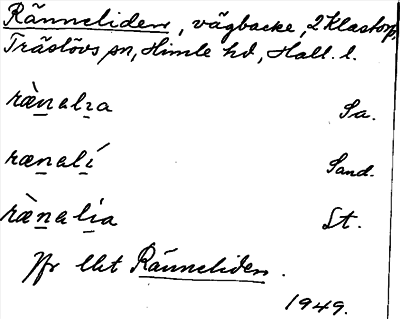 Ränneliden, vägbacke, 2 Klastorp,
Träslövs sn, Himle hd, Hall. l.
ræ̀nalıa Sa.
rænalí Sand.
ræ̀nalia St.
Jfr Ränneliden.
1949.